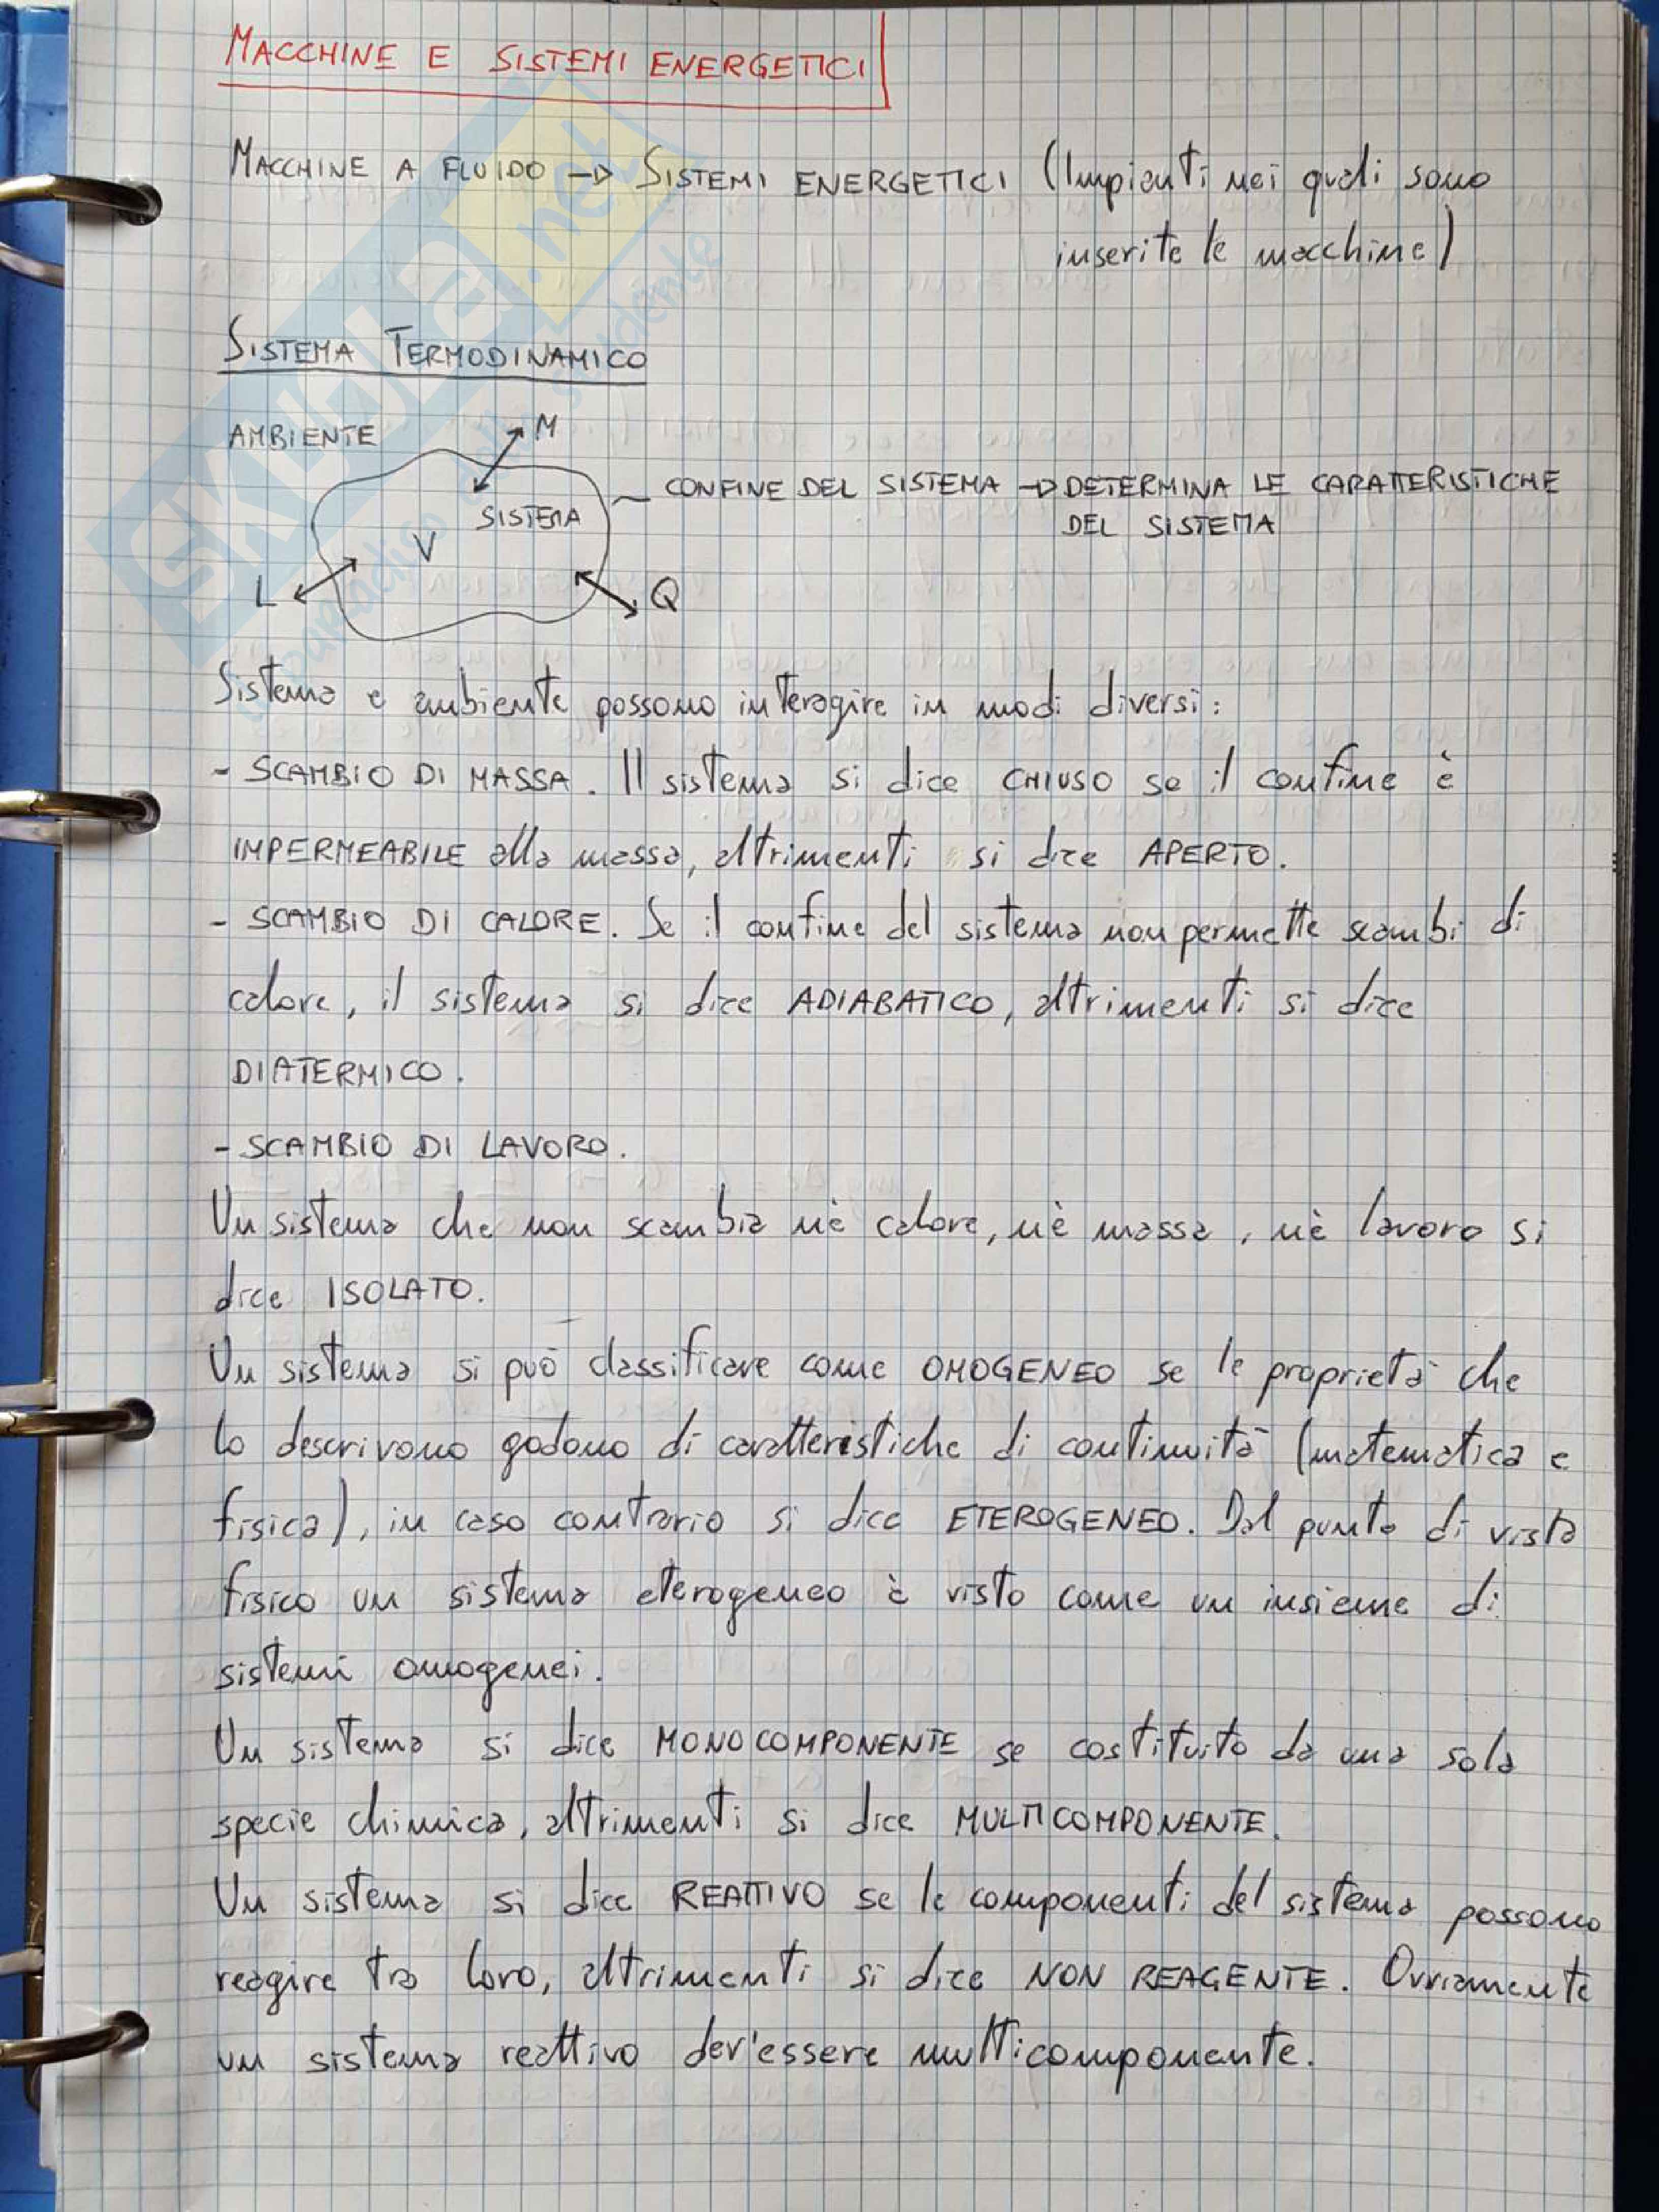 MACCHINE E SISTEMI ENERGETICI
MACCHINE A FLUIDO → SISTEMI ENERGETICI (Impianti nei quali sono
inserite le macchine)
SISTEMA TERMODINAMICO
AMBIENTE
M
CONFINE DEL SISTEMA → DETERMINA LE CARATTERISTICHE
DEL SISTEMA
SISTEMA
V
L
Q
Sistema e ambiente possono interagire in modi diversi:
- SCAMBIO DI MASSA. Il sistema si dice CHIUSO se il confine è
IMPERMEABILE alla massa, altrimenti si dice APERTO.
- SCAMBIO DI CALORE. Se il confine del sistema non permette scambi di
calore, il sistema si dice ADIABATICO, altrimenti si dice
DIATERMICO.
- SCAMBIO DI LAVORO.
Un sistema che non scambia nè calore, nè massa, nè lavoro si
dice ISOLATO.
Un sistema si può classificare come OMOGENEO se le proprietà che
lo descrivono godono di caratteristiche di continuità (matematica e
fisica), in caso contrario si dice ETEROGENEO. Dal punto di vista
fisico un sistema eterogeneo è visto come un insieme di
sistemi omogenei.
Un sistema si dice MONOCOMPONENTE se costituito da una sola
specie chimica, altrimenti si dice MULTICOMPONENTE.
Un sistema si dice REATTIVO se le componenti del sistema possono
reagire tra loro, altrimenti si dice NON REAGENTE. Ovviamente
un sistema reattivo dev'essere multicomponente.
SKUOLA.net
il paradiso dello studente